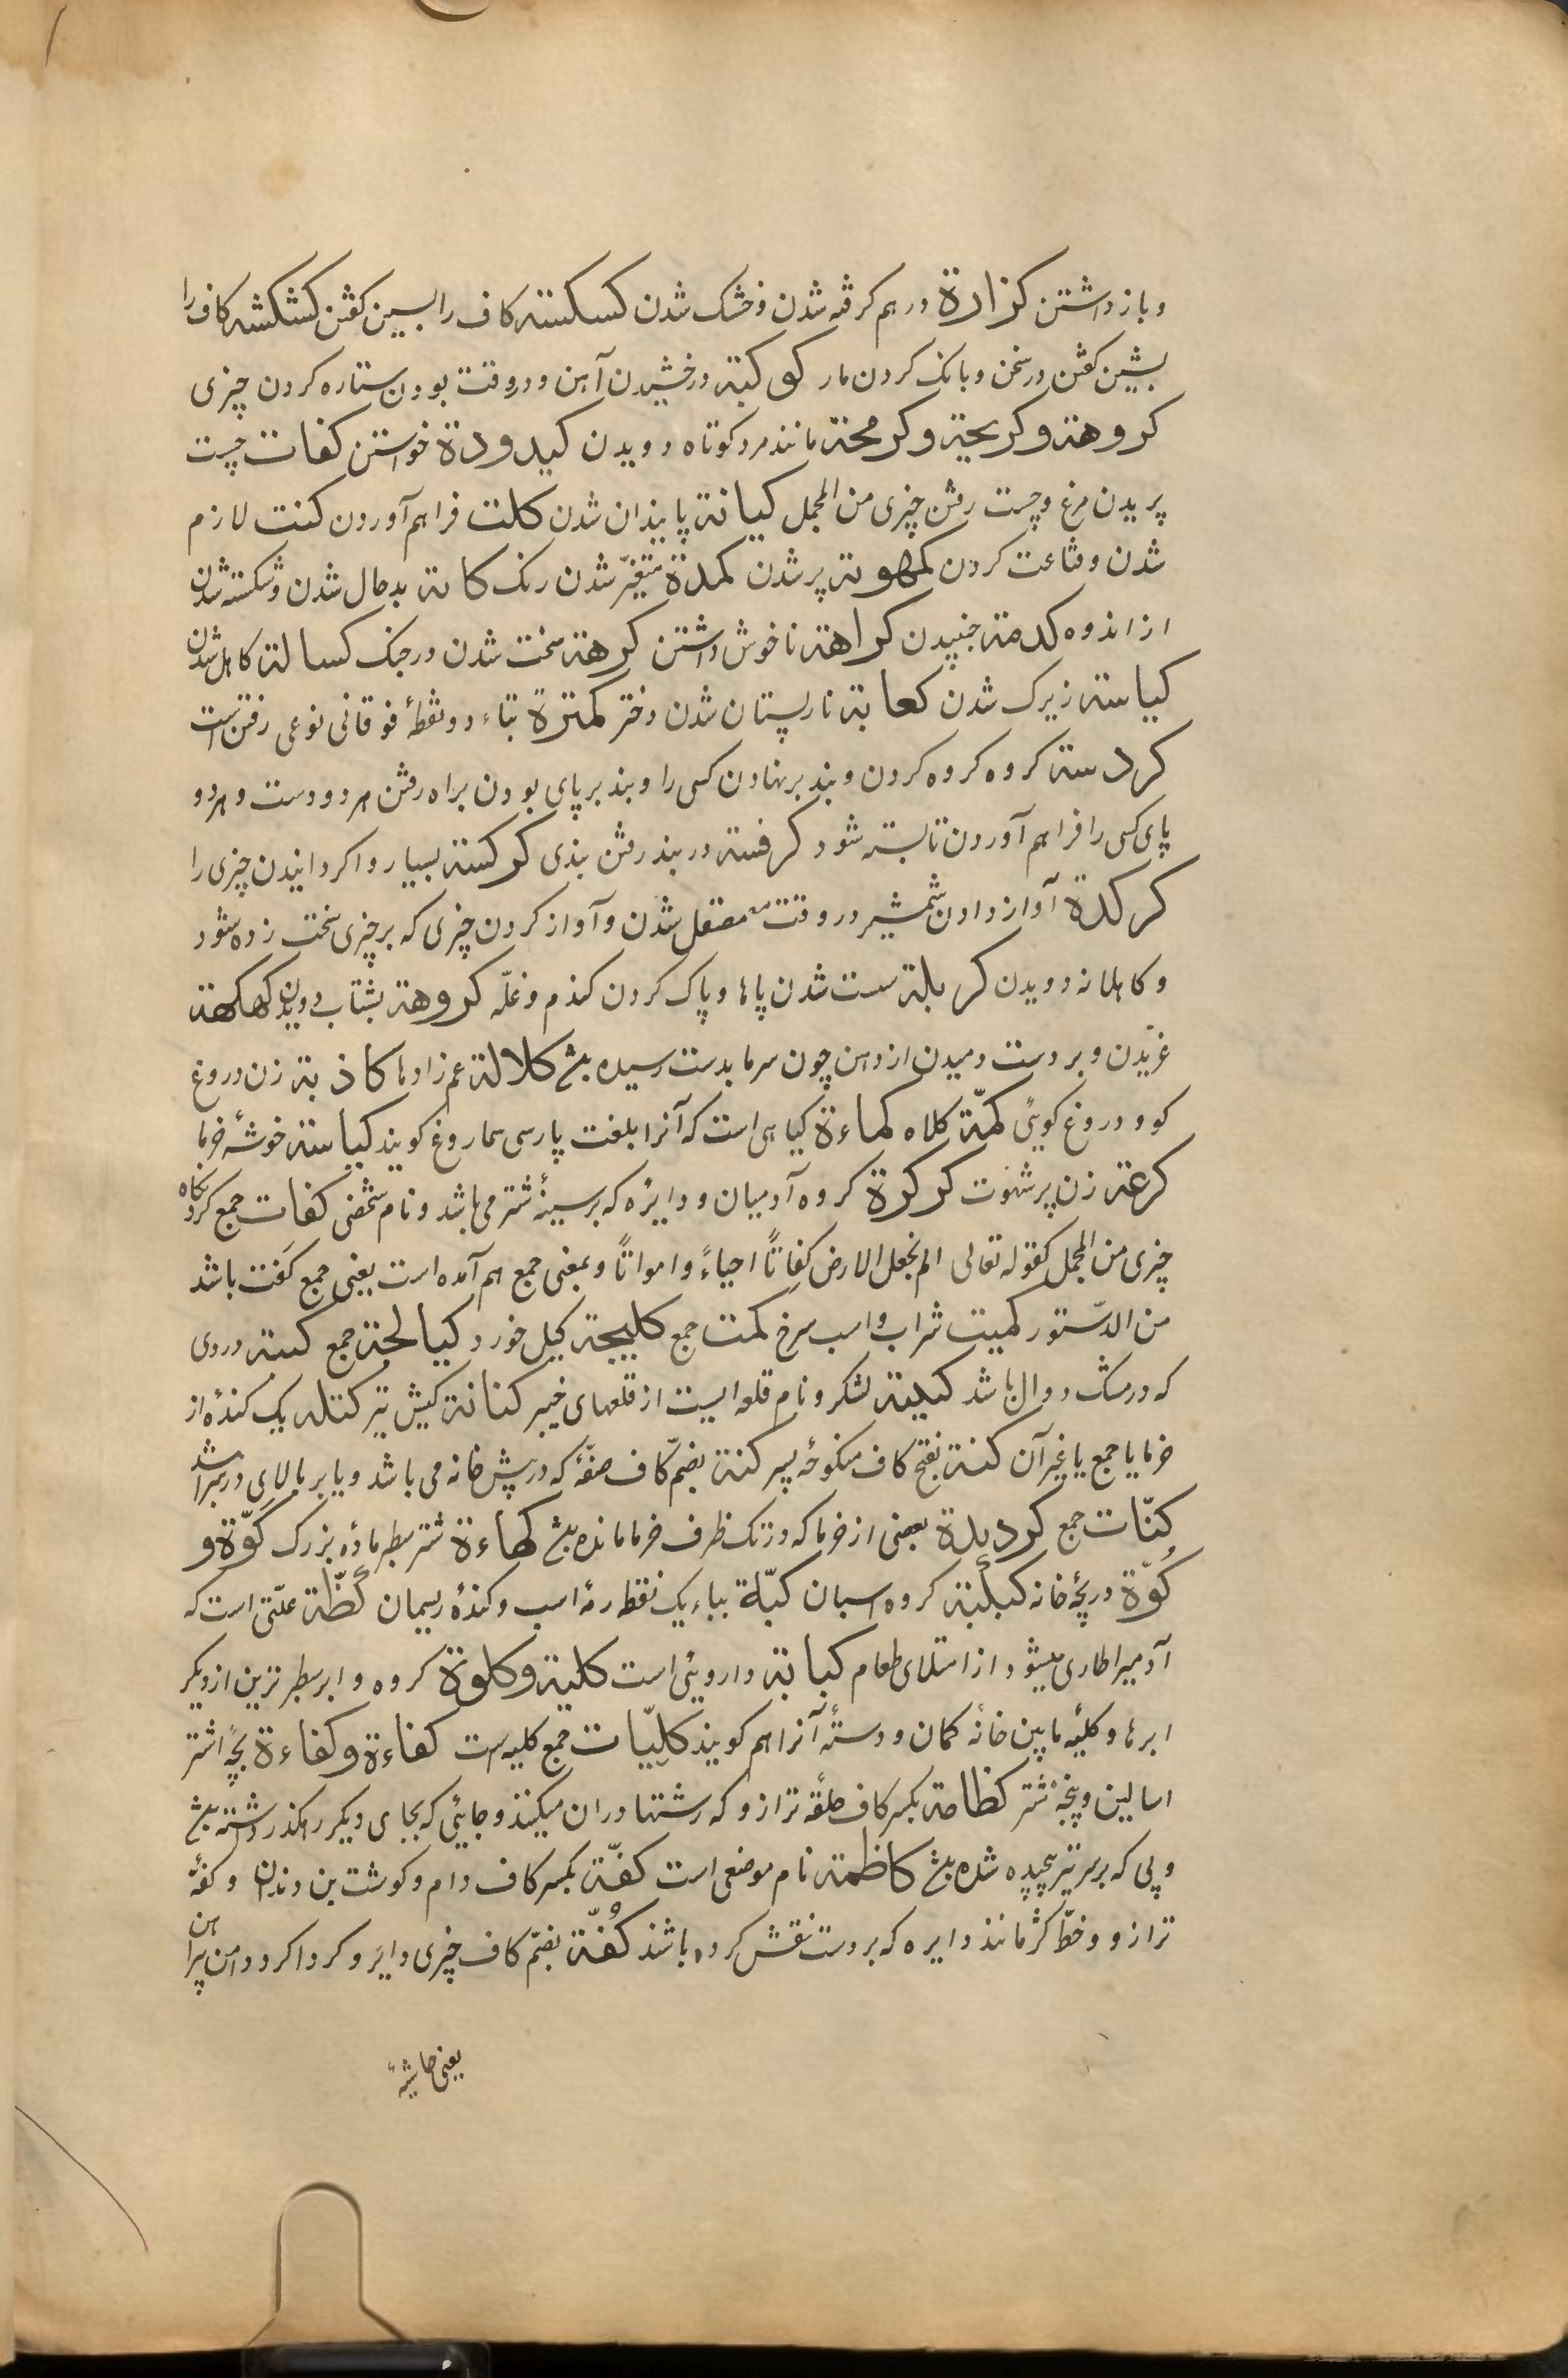 و باز داشتن کزازة درهم کرفته شدن و خشک شدن کسکسته کاف را بسین کفتن کشکشه کاف را
بشین کفتن در سخن و بانک کردن مار کوکبة درخشیدن آهن و در وقت بودن ستاره کردن چیزی
کروهة و کربحة و کرمحة مانند مرد کوتاه دویدن کیدودة خواستن کفات چست
پریدن مرغ و چست رفتن چیزی من المجمل کیانة پایندان شدن کلت فراهم آوردن کنت لازم
شدن و قناعت کردن کمهوته پر شدن کمدة متغیّر شدن رنک کابة بد حال شدن و شکسته شدن
از اندوه کدمة جنبیدن کراهة ناخوش داشتن کرهة سخت شدن در جنک کسالة کاهل شدن
کیاسة زیرک شدن کعابة نار پستان شدن دختر کمترة بتاء دو نقطهٔ فوقانی نوعی رفتن است
کردسة کروه کروه کردن و بند بر نهادن کسی را و بند بر پای بودن براه رفتن هر دو دست و هر دو
پای کسی را فراهم آوردن تا بسته شود کرفسة در بند رفتن بندی کرکسة بسیار واکردانیدن چیزی را
کرکدة آواز دادن شمشیر در وقت مصقل شدن و آواز کردن چیزی که بر چیزی سخت زده شود
و کاهلانه دویدن کربلة سست شدن پاها و پاک کردن کندم و غلّه کروهة بشتاب دویدن کهکهة
غرّیدن و بر دست دمیدن از دهن چون سرما بدست رسیده باشد کلالة عم زادها کاذبة زن دروغ
کو و دروغ کویئ کمّة کلاه کماءة کیاهی است که آنرا بلغت پارسی سماروغ کویند کباسة خوشهٔ خرما
کرعة زن پر شهوت کرکرة کروه آدمیان و دایره که بر سینهٔ شتر می باشد و نام شخصی کفات جمع کردنکاه
چیزی من المجمل کقوله تعالی الم نجعل الارض کفاتاً احیاءً و امواتاً و بمعنی جمع هم آمده است یعنی جمع کفت باشد
من الدّستور کمیت شراب و اسب سرخ کمت جمع کلیجة کیل خورد کیالجة جمع کبة دردی
که در مشک دوال باشد کتیبة لشکر و نام قلعه ایست از قلعهای خیبر کنانة کیش تیر کتلة یک کندهٔ از
خرما یا جمع یا غیر آن کنّة بفتح کاف منکوحهٔ پسر کنة بضمّ کاف صفّهٔ که در پیش خانه می باشد و یا بر بالای در سرا باشد
کنّات جمع کردیدة بعضی از خرما که در تک ظرف خرما مانده باشد کهاءة شتر سطبر ماده بزرک کوّة و
کُوّة دریچهٔ خانه کبکبة کروه اسبان کبّة بباء یک نقطه رمهٔ اسب و کندهٔ ریسمان کظّة علّتی است که
آدمیرا طاری میشود از امتلای طعام کبابة دارویئی است کلیة و کلوة کروه و ابر سطبرترین از دیکر
ابرها و کلیهٔ ما بین خانهٔ کمان و دستهٔ آنرا هم کویند کلیّات جمع کلیه است کفاءة و کفاءة بچهٔ اشتر
امسالین و پنجهٔ شتر کظامة بکسر کاف حلقهٔ ترازو که رشتها در ان میکنند و جایئی که بجای دیکر راهکذر داشته باشد
و پی که بر سر تیر پیچیده شده باشد کاظمة نام موضعی است کفّة بکسر کاف دام و کوشت بن دندان و کفهٔ
ترازو و خطّ کژ مانند دایره که بر دست نقش کرده باشند کُفّة بضمّ کاف چیزی دایر و کرداکرد دامن پیراهن
یعنی حاشیهٔ